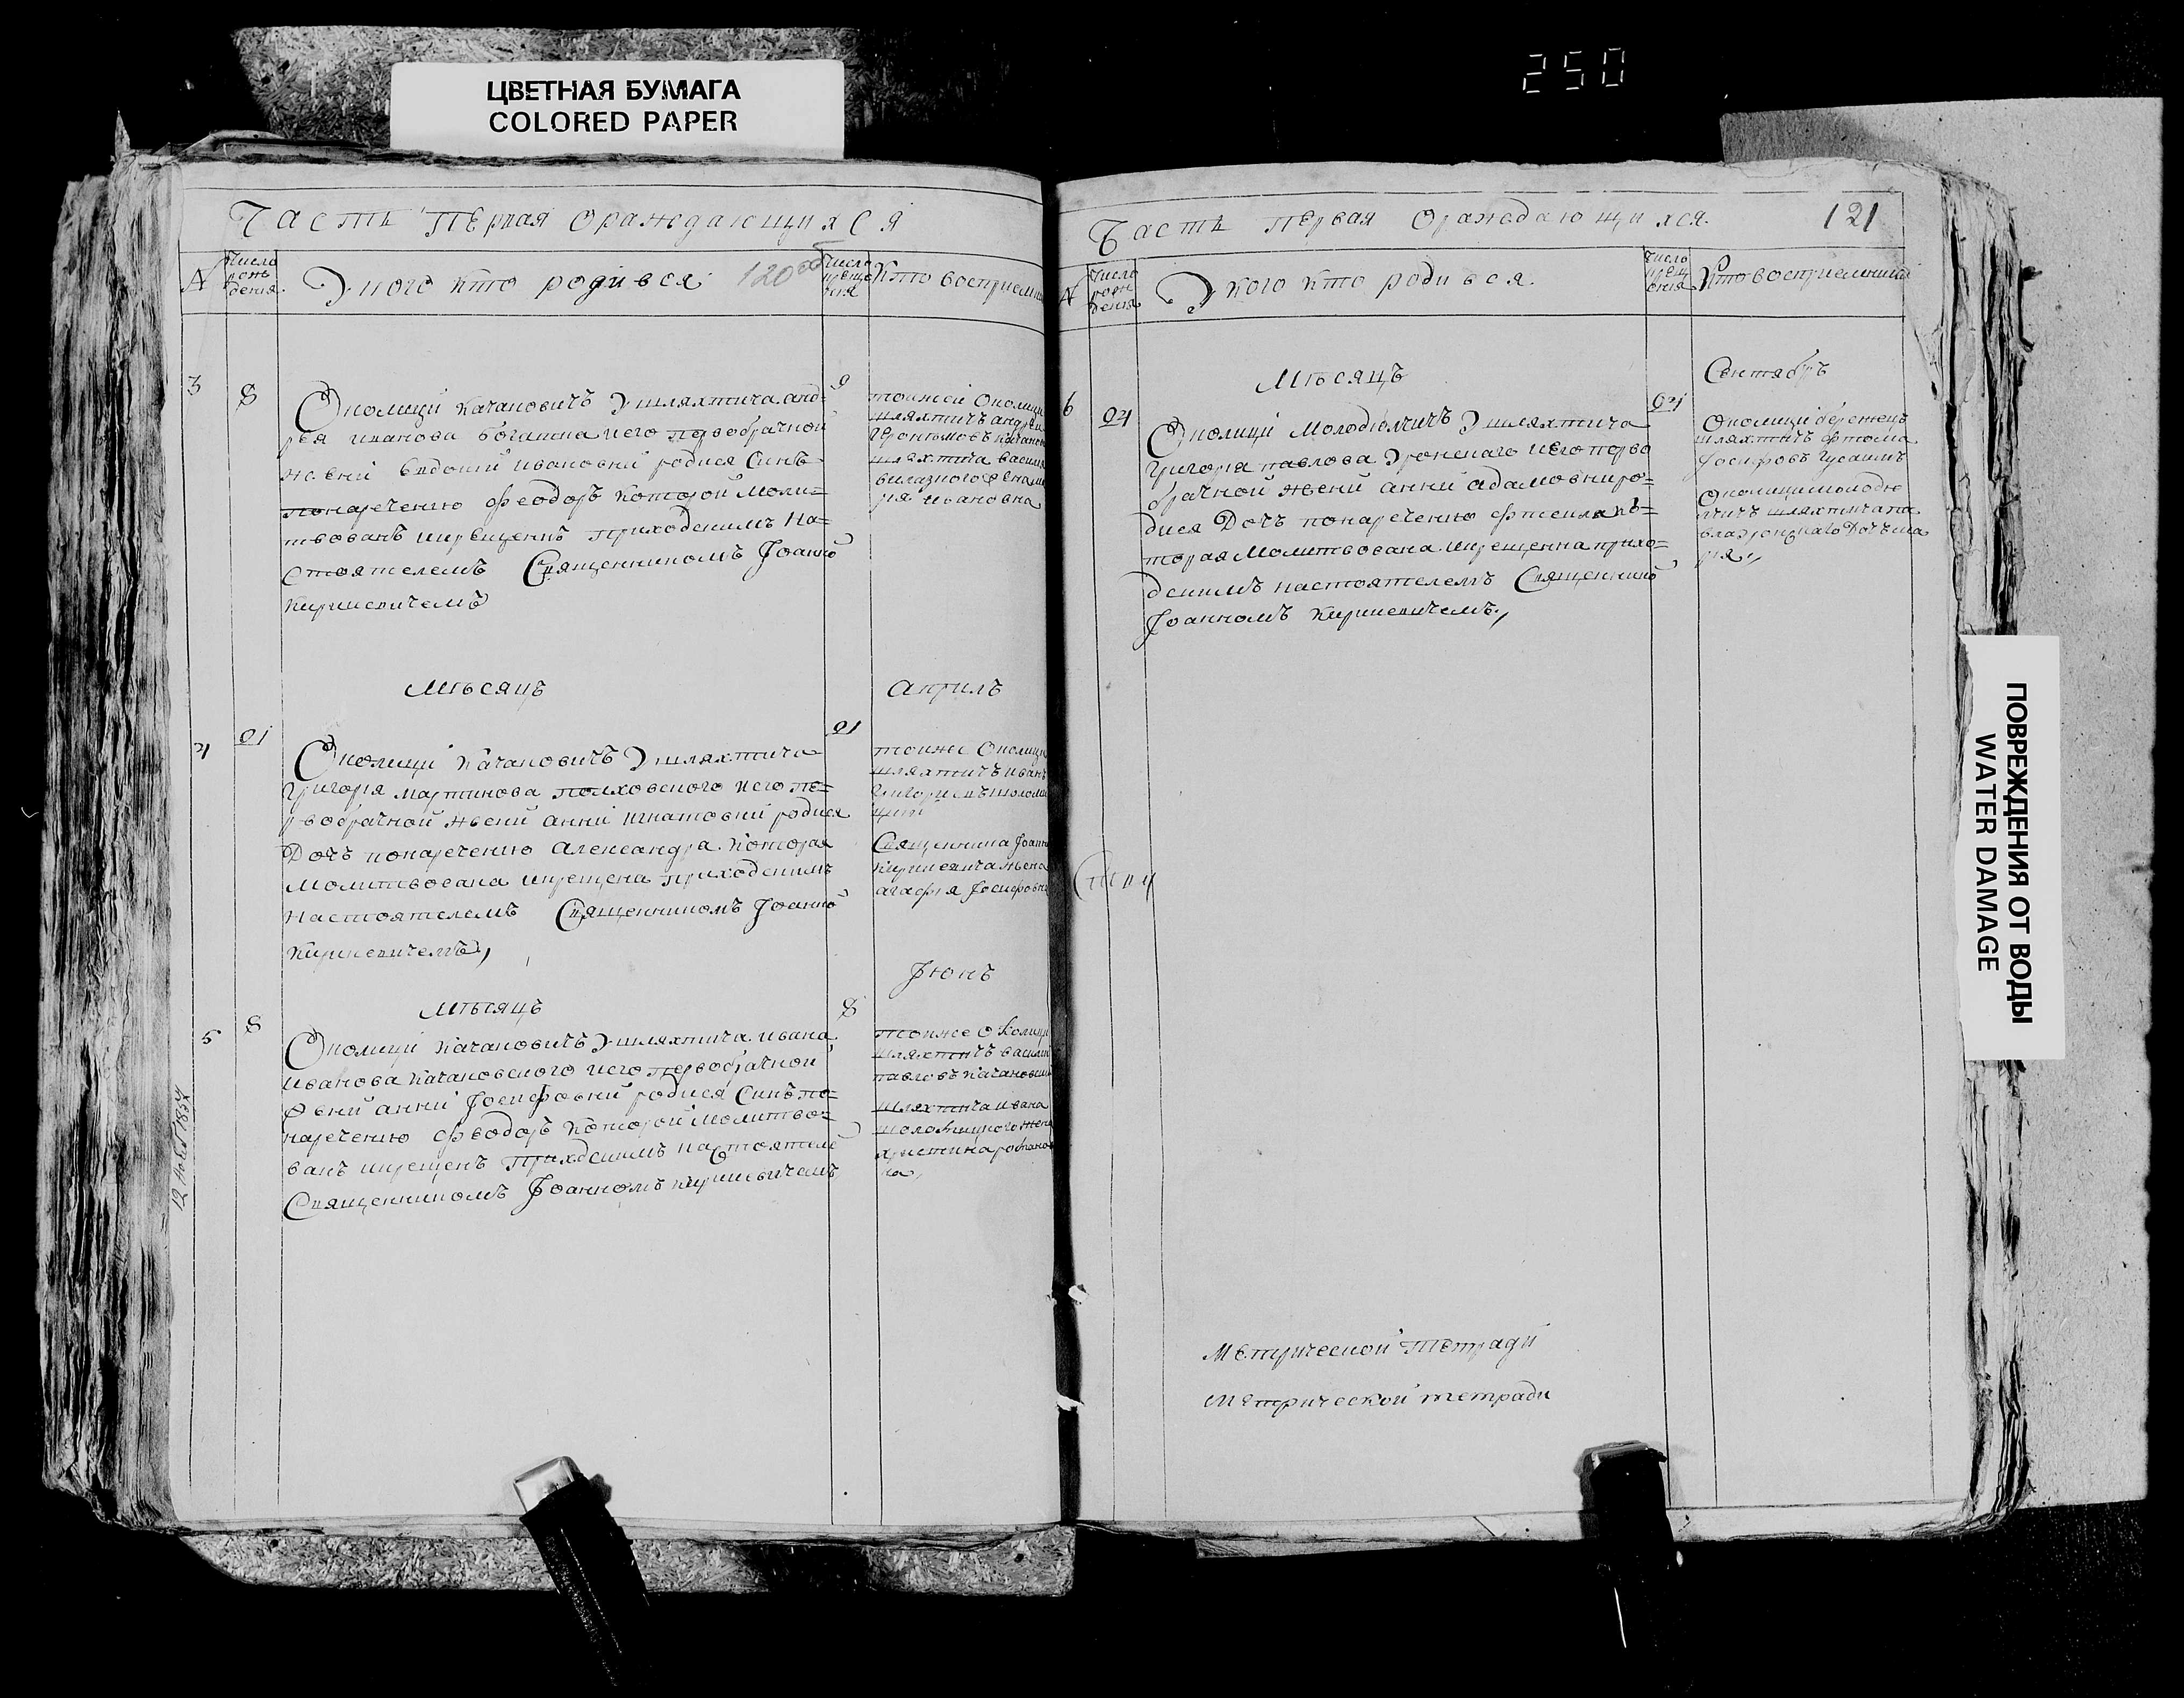 ЦВЕТНАЯ БУМАГА
COLORED PAPER
250
Часть Первая ораждающихся
№
Число рож дения
У кого кто родився
120 об
Число крещения
Кто восприемни
3
8
Околици Качановичъ У шляхтича анд=
рея иванова богаткаиего первобрачной
жени Евдокии ивановни родися Синъ
понаречению Феодоръ которой Моли=
твованъ икрещенъ приходскимъ На=
стоятелемъ Священникомъ Іоанно
Кирикевичемъ
9
тоижей Околици
шляхтичъ андрей
шляхтича васил
ия ивановна
Мѣсяцъ
Априлъ
4
21
Околици Качановичъ У шляхтича
Григория мартинова полховского иего пе=
рвобрачной жени анни игнатовни родися
Дочъ понаречению александра которая
Молитвована икрещена приходскимъ
Настоятелемъ Священникомъ Іоанно
Кирикевичемъ,
21
тоиже Околици
шляхтичъ иванъ
Священника Іоанна
Кирикевича жена
агафия Іосифовна
Мѣсяцъ
Іюнъ
5
8
Околици Качановичъ У шляхтича ивана
иванова Качановского иего первобрачной
жени анни Іосифовни родися Синъ по=
наречению феодоръ которой Молитво=
ванъ икрещенъ приходскимъ настоятеле
Священникомъ Іоанномъ Кирикевичемъ
8
тоиже Околици
шляхтичъ василий
павловъ Качановский
шляхтича ивана
шоломицкого жена
христина романов
на,
Часть Первая Ораждающихся.
121
№
Число рож дения
У кого кто родився.
Число крещ ения
Кто восприемники
Мѣсяцъ
Сентябръ
6
24
Околици Молодюлчичъ У шляхтича
Григория павлова Уронского иего перво
брачной жени анни адамовниро=
дися Дочъ понаречению фтекла ко=
торая Молитвована икрещенна прихо=
дскимъ настоятелемъ Священнико
Іоанномъ Кирикевичемъ,
24
Околици бережецъ
шляхтичъ фтома
Іосифовъ Гусакъ
Околици молодю
лчичъ шляхтича па
вла уронскаго Дочъ ма
рия,
Метрической Тетради
Метрической тетради
ПОВРЕЖДЕНИЯ ОТ ВОДЫ
WATER DAMAGE